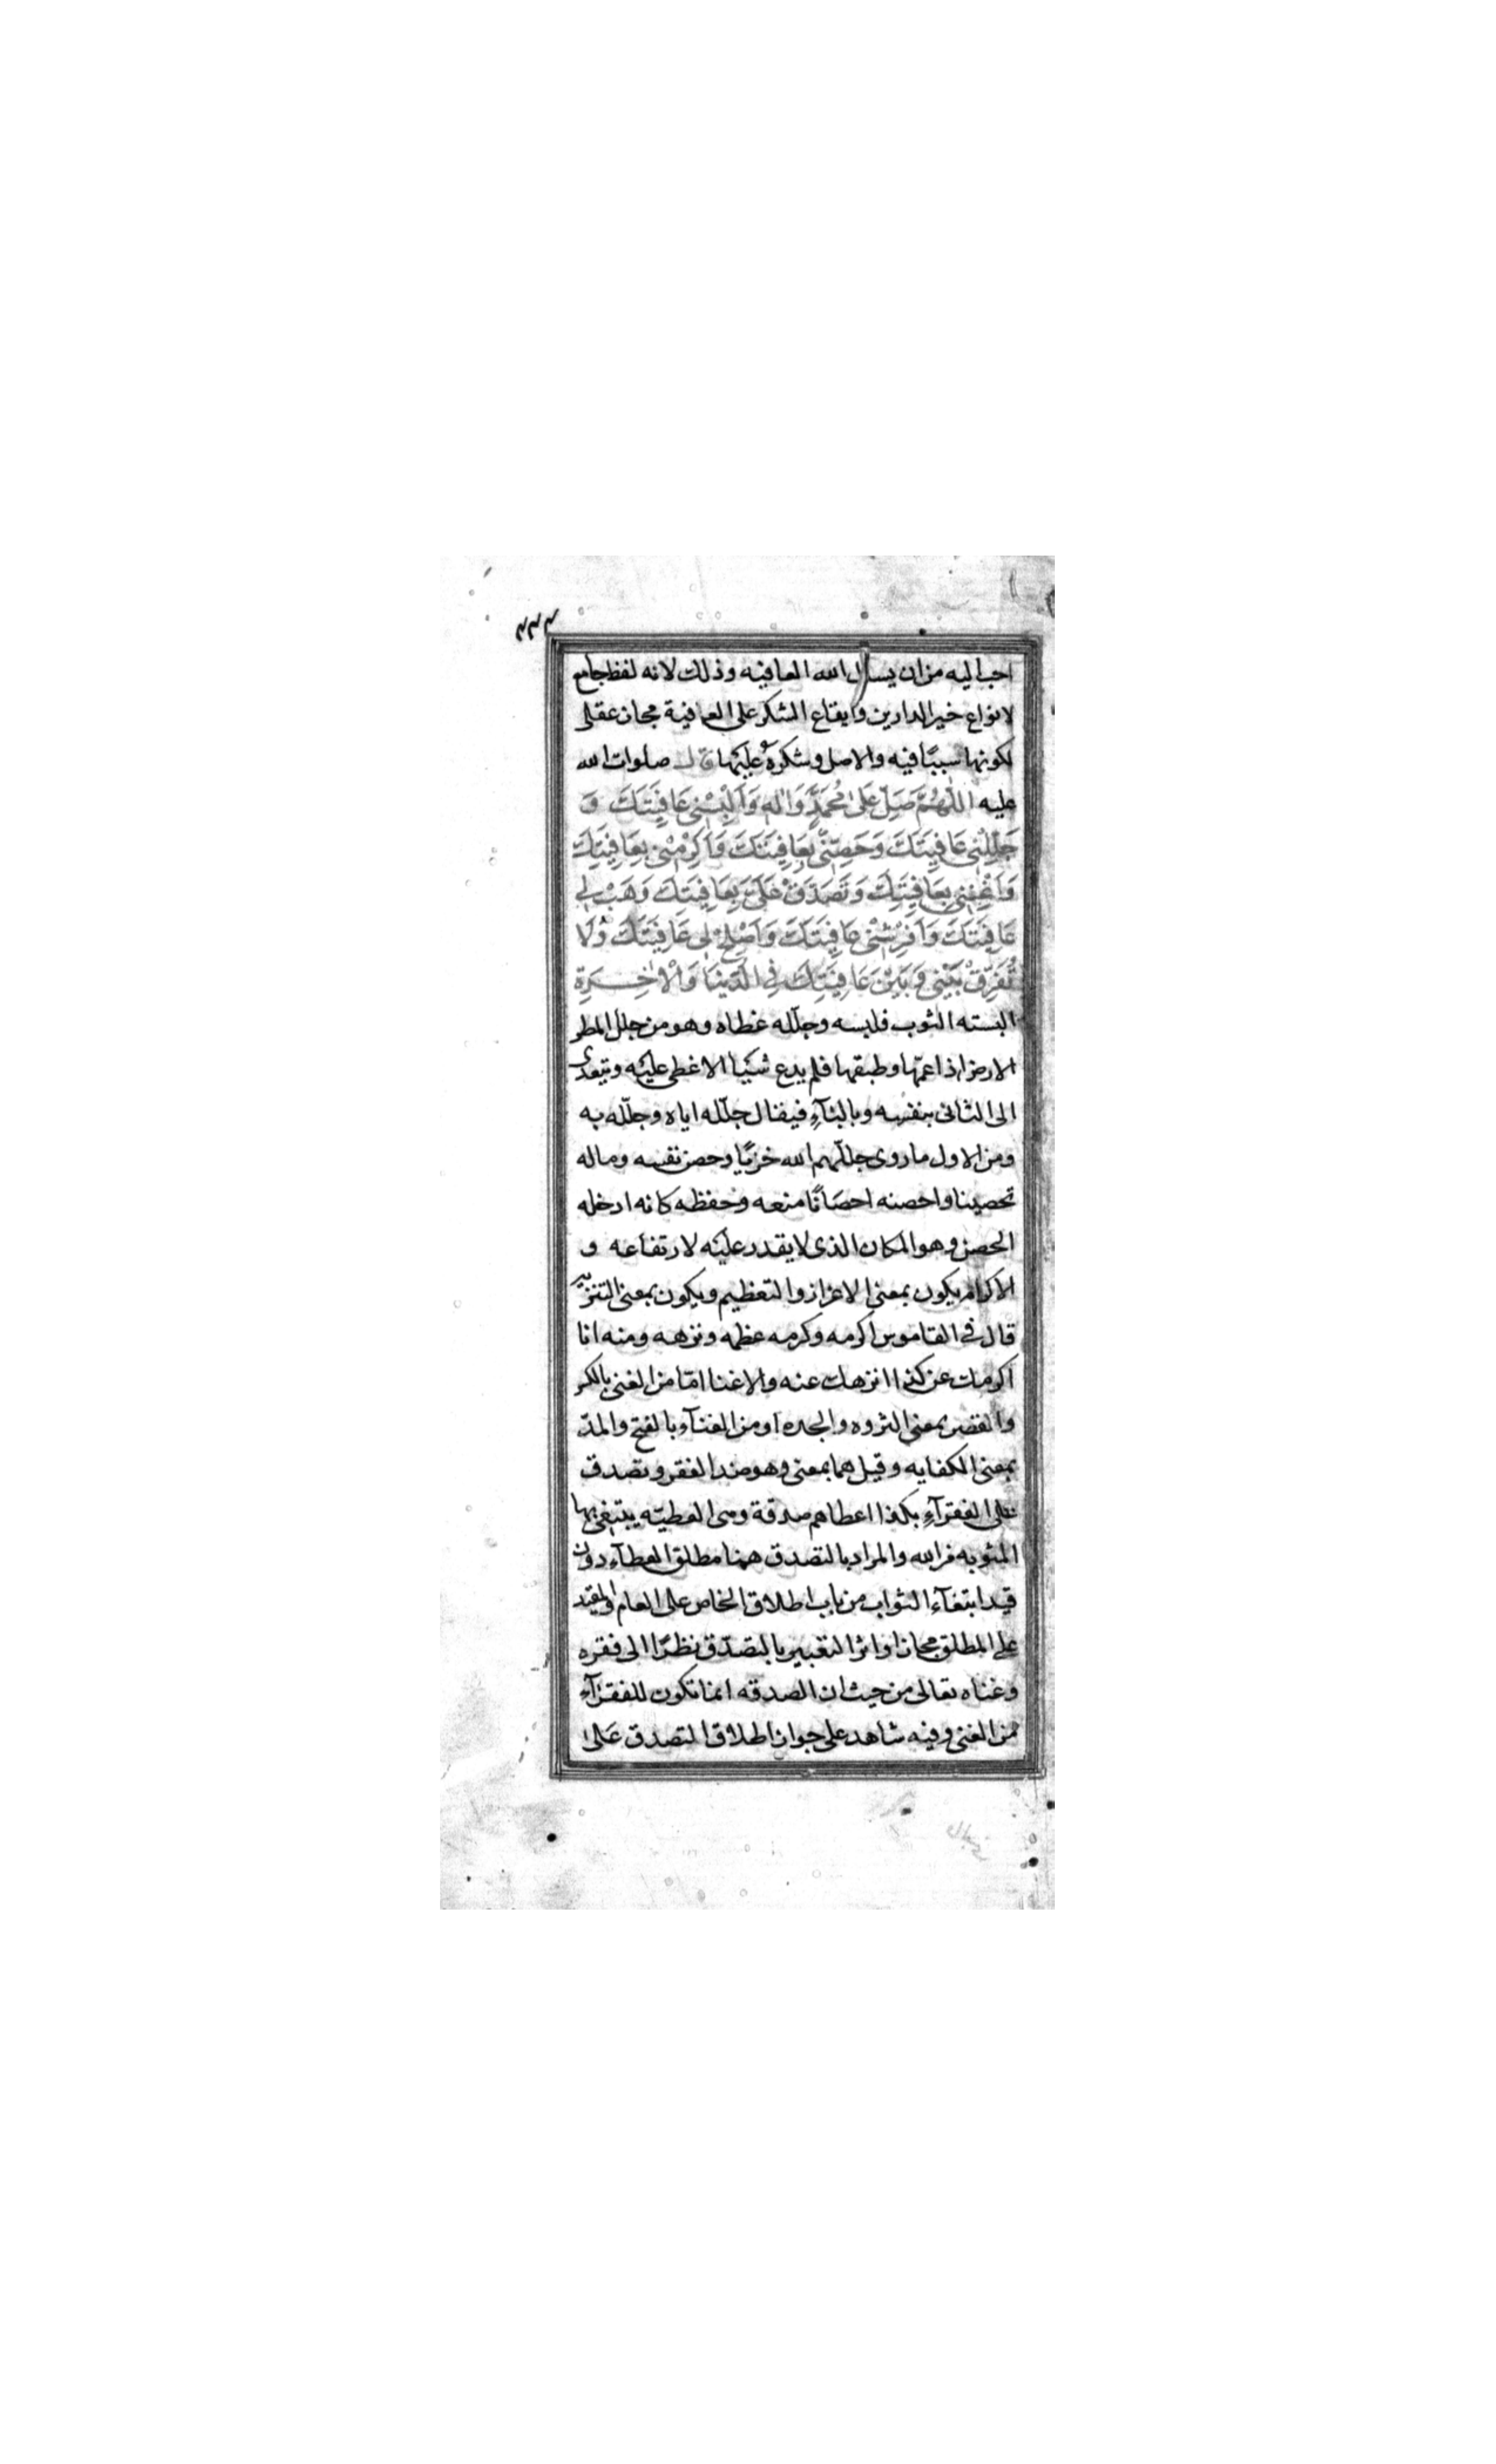 ٣٣٣
احب اليه من ان يسال الله العافيه وذلك لانه لفظ جامع
لانواع خير الدارين وايقاع الشكر على العافية مجاز عقلى
لكونها سببًا فيه والاصل وشكره عليها قال صلوات الله
عليه اَللّٰهُمَّ صَلِّ عَلٰى مُحَمَّدٍ وَاٰلِهِ وَاَلْبِسْنِى عَافِيَتَكَ وَ
جَلِّلْنِى عَافِيَتَكَ وَحَصِّنِّى بِعَافِيَتِكَ وَاَكْرِمْنِى بِعَافِيَتِكَ
وَاَغْنِنِى بِعَافِيَتِكَ وَتَصَدَّقْ عَلَىَّ بِعَافِيَتِكَ وَهَبْ لِى
عَافِيَتَكَ وَاَفْرِشْنِى عَافِيَتَكَ وَاَصْلِحْ لِى عَافِيَتَكَ وَلَا
تُفَرِّقْ بَيْنِى وَبَيْنَ عَافِيَتِكَ فِى الدُّنْيَا وَالْاٰخِرَةِ
البسته الثوب فلبسه وجلّله غطاه وهو من جلل المطر
الارض اذا عمّها وطبقها فلم يدع شيًا الا غطى عليه ويتعدى
الى الثانى بنفسه وبالبآءِ فيقال جلّله اياه وجلّله به
ومن الاول ما روى جللّهم الله خزيًا وحصن نفسه وماله
تحصينا واحصنه احصَانًا منعه وحفظه كانه ادخله
الحصن وهو المكان الذى لا يقدر عليه لارتفاعه و
الاكرام يكون بمعنى الاعزاز والتعظيم ويكون بمعنى التنزيه
قال فى القاموس اكرمه وكرمه عظمه ونزهه ومنه انا
اكرمك عن كذا انزهك عنه والاغنا امّا من الغنى بالكسر
والقصر بمعنى الثروه والجده او من الغنآء بالفتح والمدّ
بمعنى الكفايه وقيل هما بمعنى وهو ضد الفقر وتصدق
على الفقرآءِ بكذا اعطاهم صدقة وهى العطيّه يبتغى بها
المثوبه من الله والمراد بالتصدق هنا مطلق العطآء دون
قيد ابتغآء الثواب من باب اطلاق الخاص على العام والمقيد
على المطلق مجازا واثر التعبير بالتصدّق نظرًا الى فقره
وغناه تعالى من حيث ان الصدقه انما تكون للفقرآءِ
من الغنى وفيه شاهد على جواز اطلاق التصدق عَلى